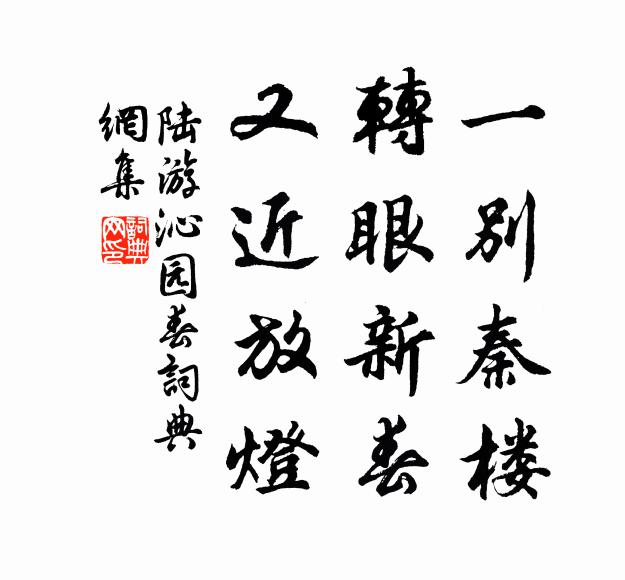 一别秦楼
轉眼新春
又近放燈
陆游沁园春詞典
網集
詞典
网印